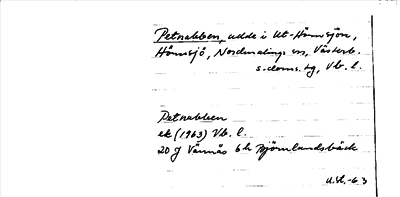 Petnabben, udde i Ut-Hömsjön,
Hömsjö, Nordmalings sn, Västerb.
s. doms. hg, Vb. l.
Petnabben
ek (1963) Vb. l.
20 J Vännäs 6 h Björnlandsbäck
-63